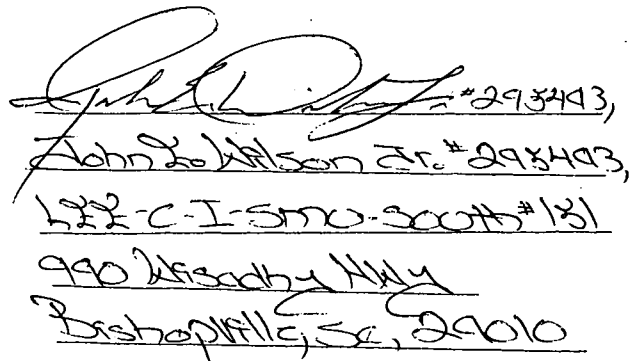 #295493,
John L. Wilson Jr. #295493,
LEE-C-I-SMU-South #131
990 Wisacky Hwy
Bishopville, SC, 29010